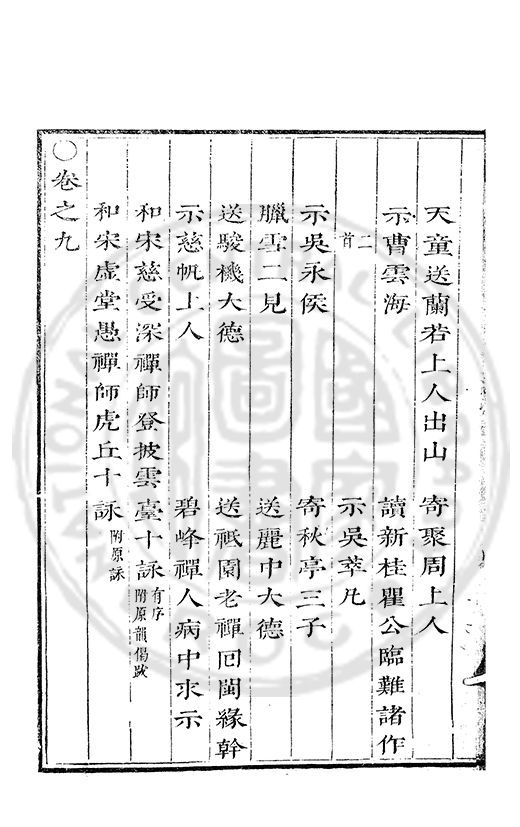 天童送蘭若上人出山　寄聚周上人
示曹雲海　讀新桂瞿公臨難諸作
二首　示吳莘凡
示吳永侯　寄秋亭三子
臘雪二見　送麗中大德
送駿機大德　送祇園老禪回閩緣幹
示慈帆上人　碧峰禪人病中求示
和宋慈受深禪師登披雲臺十詠 有序 附原韻偈跋
和宋虛堂愚禪師虎丘十詠 附原詠
○卷之九